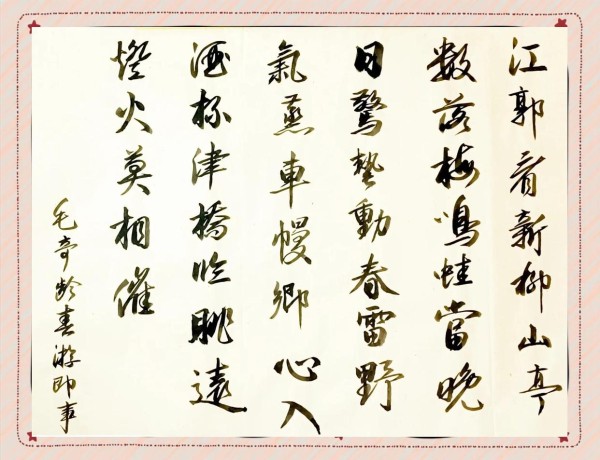 江郭看新柳山亭
数落梅鳴蛙當晚
日驚蟄動春雷野
氣蒸車幔鄉心入
酒杯津橋临眺遠
燈火莫相催
毛奇龄春游即事